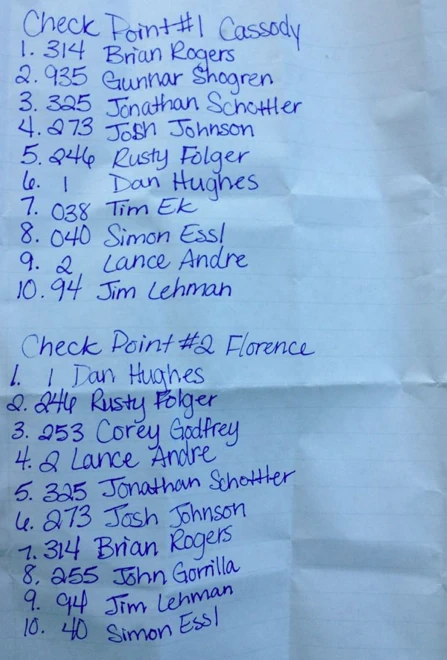 Check Point #1 Cassody
1. 314 Brian Rogers
2. 935 Gunnar Shogren
3. 325 Jonathan Schottler
4. 273 Josh Johnson
5. 246 Rusty Folger
6. 1 Dan Hughes
7. 038 Tim Ek
8. 040 Simon Essl
9. 2 Lance Andre
10. 94 Jim Lehman
Check Point #2 Florence
1. 1 Dan Hughes
2. 246 Rusty Folger
3. 253 Corey Godfrey
4. 2 Lance Andre
5. 325 Jonathan Schottler
6. 273 Josh Johnson
7. 314 Brian Rogers
8. 255 John Gorrilla
9. 94 Jim Lehman
10. 40 Simon Essl